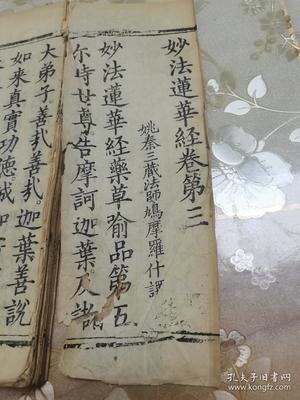 妙法蓮華經卷第三
姚秦三藏法師鳩摩羅什譯
妙法蓮華經藥草喻品第五
尒時世尊告摩訶迦葉及諸
大弟子善哉善哉迦葉善說
如來真實功德誠如
孔夫子旧书网